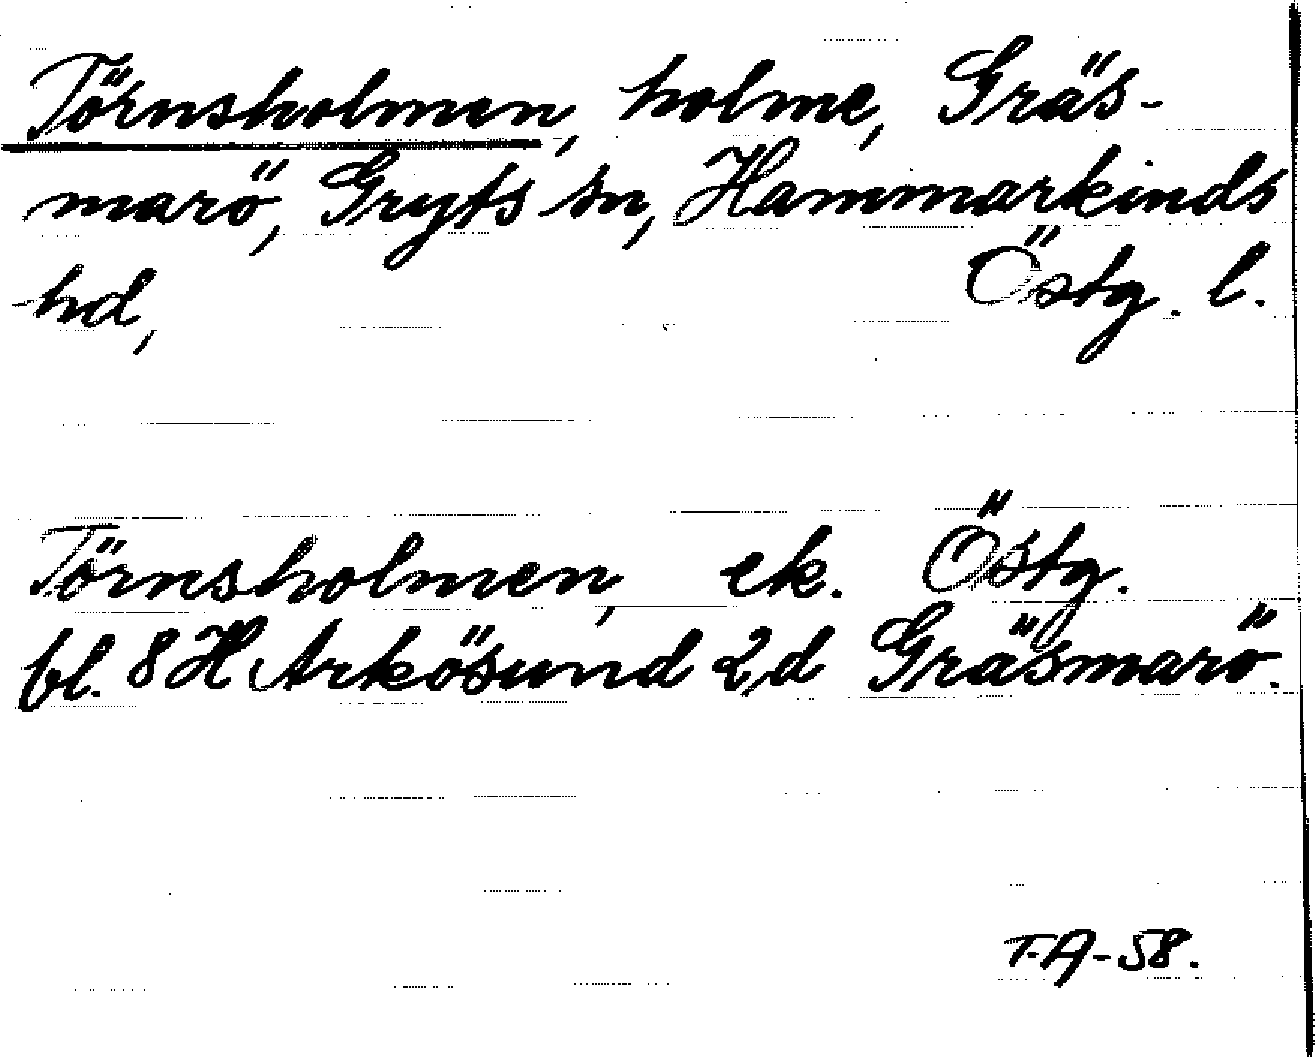 Törnsholmen, holme, Gräs-
marö, Gryts sn, Hammarkinds
hd, Östg. l.
Törnsholmen, ek. Östg.
bl. 8H Arkösund 2d Gräsmarö.
T.A-58.